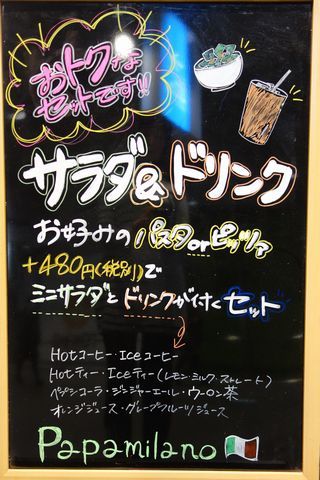 おトクな
セットです!!
サラダ&ドリンク
お好みのパスタorピッツァ
+480円(税別)で
ミニサラダとドリンクが付くセット
Hotコーヒー・Iceコーヒー
Hotティー・Iceティー(レモン・ミルク・ストレート)
ペプシコーラ・ジンジャーエール・ウーロン茶
オレンジジュース・グレープフルーツジュース
Papamilano